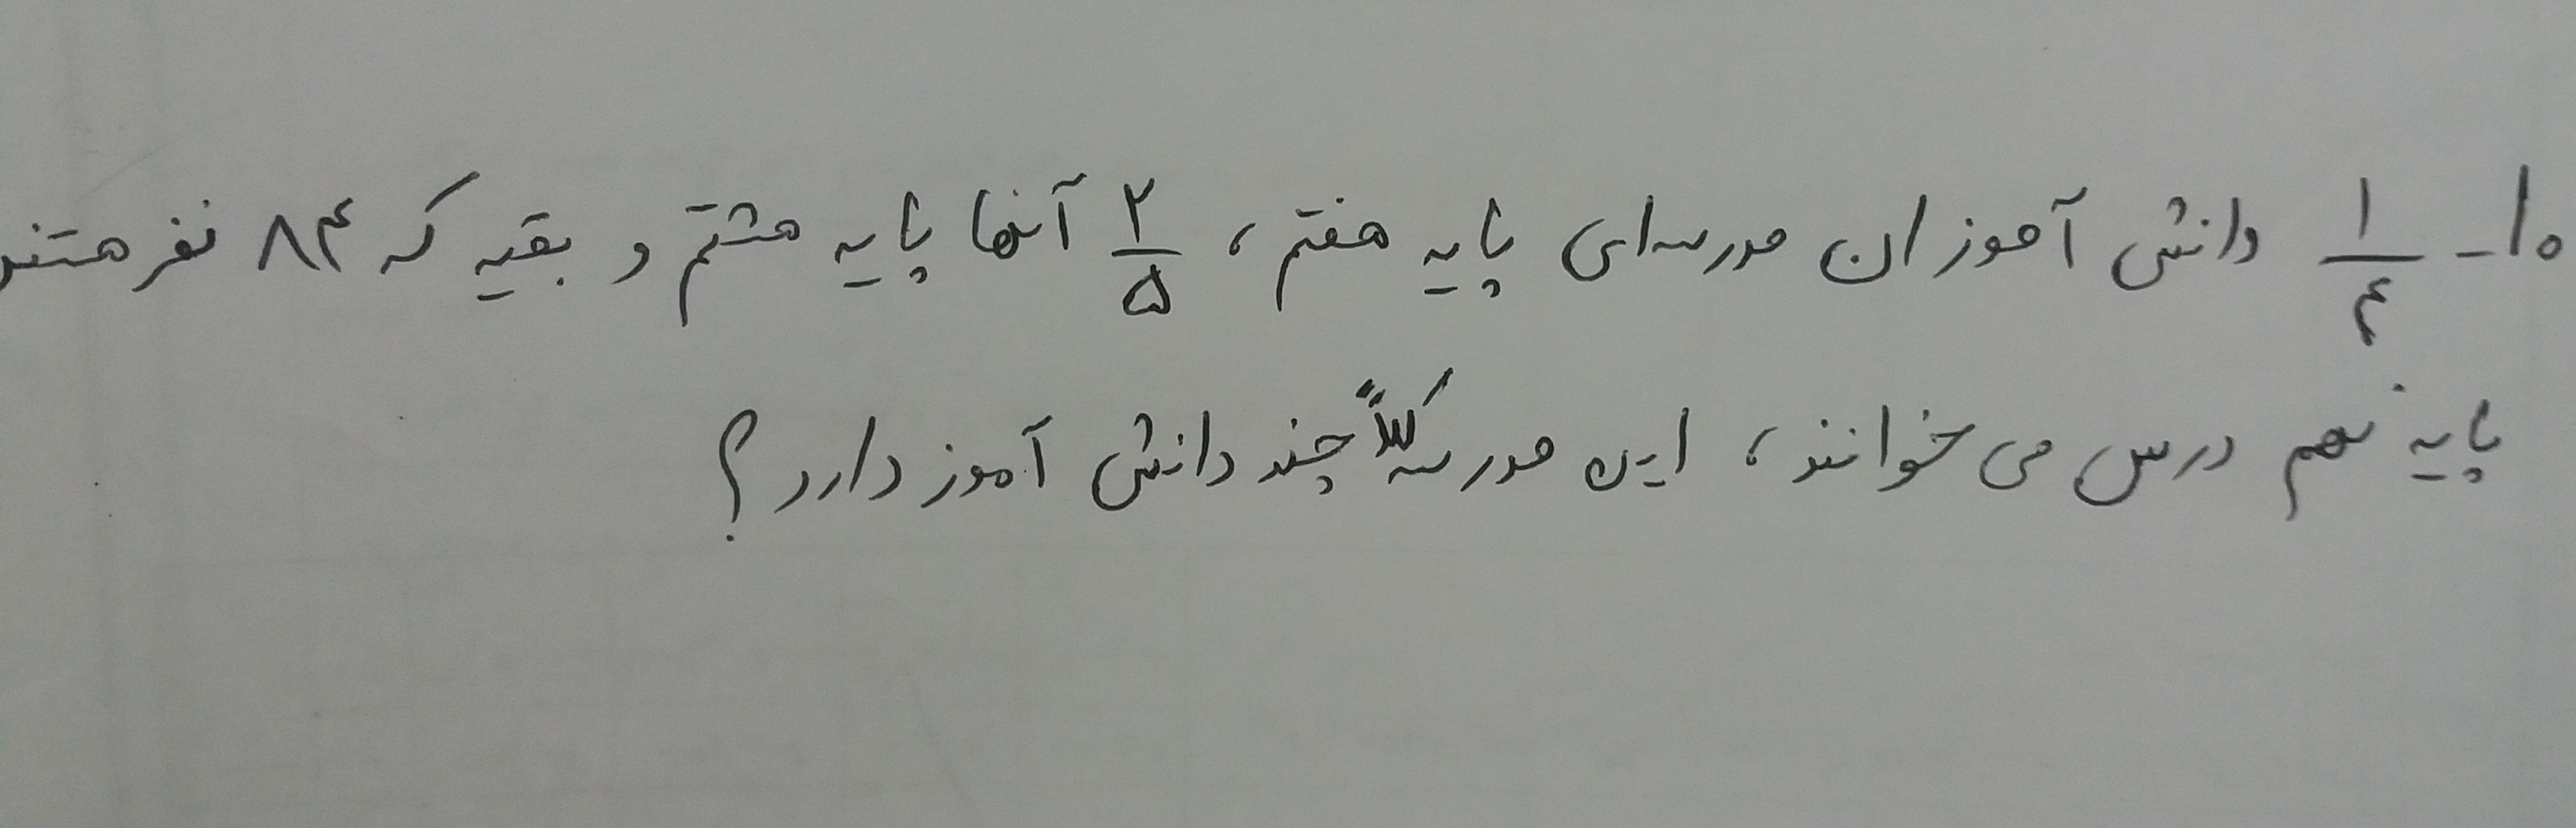 ۱۰- ۱/۴ دانش آموزان مدرسه‌ای پایه هفتم، ۲/۵ آنها پایه هشتم و بقیه که ۸۴ نفر هستند
پایه نهم درس می خوانند، این مدرسه کلاً چند دانش آموز دارد؟